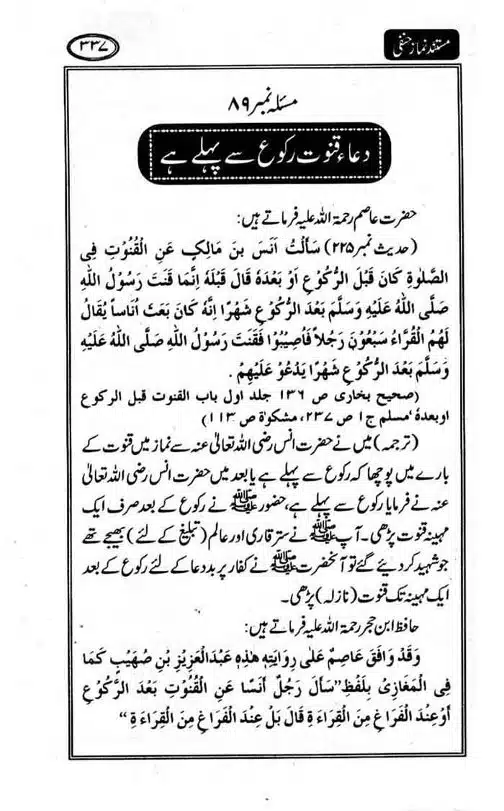 مستند نماز حنفی
۳۳۷
مسئلہ نمبر ۸۹
دعاء قنوت رکوع سے پہلے ہے
حضرت عاصم رحمۃ اللہ علیہ فرماتے ہیں:
(حدیث نمبر ۲۲۵) سَأَلْتُ اَنَسَ بنَ مَالِکٍ عَنِ الْقُنُوْتِ فِی
الصَّلٰوۃِ کَانَ قَبْلَ الرُّکُوْعِ اَوْ بَعْدَہٗ قَالَ قَبْلَہٗ اِنَّمَا قَنَتَ رَسُوْلُ اللّٰہِ
صَلَّی اللّٰہُ عَلَیْہِ وَسَلَّمَ بَعْدَ الرُّکُوْعِ شَہْرًا اِنَّہٗ کَانَ بَعَثَ اُنَاساً یُقَالُ
لَہُمُ الْقُرَّاءُ سَبْعُوْنَ رَجُلاً فَاُصِیْبُوْا فَقَنَتَ رَسُوْلُ اللّٰہِ صَلَّی اللّٰہُ عَلَیْہِ
وَسَلَّمَ بَعْدَ الرُّکُوْعِ شَہْرًا یَدْعُوْ عَلَیْہِمْ .
(صحیح بخاری ص ۱۳۶ جلد اول باب القنوت قبل الرکوع
اوبعدہٗ‘ مسلم ج ۱ ص ۲۳۷، مشکوٰۃ ص ۱۱۳)
(ترجمہ) میں نے حضرت انس رضی اللہ تعالیٰ عنہ سے نماز میں قنوت کے
بارے میں پوچھا کہ رکوع سے پہلے ہے یا بعد میں حضرت انس رضی اللہ تعالیٰ
عنہ نے فرمایا رکوع سے پہلے ہے، حضور ﷺ نے رکوع کے بعد صرف ایک
مہینہ قنوت پڑھی۔ آپ ﷺ نے ستر قاری اور عالم (تبلیغ کے لئے) بھیجے تھے
جو شہید کر دیئے گئے تو آنحضرت ﷺ نے کفار پر بددعا کے لئے رکوع کے بعد
ایک مہینہ تک قنوت (نازلہ) پڑھی۔
حافظ ابن حجر رحمۃ اللہ علیہ فرماتے ہیں:
وَقَدْ وَافَقَ عَاصِمٌ عَلٰی رِوَایَتِہٖ ھٰذِہٖ عَبْدُالْعَزِیْزِ بْنِ صُھَیْبٍ کَمَا
فِی الْمَغَازِیْ بِلَفْظِ”سَأَلَ رَجُلٌ اَنَسًا عَنِ الْقُنُوْتِ بَعْدَ الرَّکُوْعِ
أَوْعِنْدَ الْفَرَاغِ مِنَ الْقِرَاءَ ۃِ قَالَ بَلْ عِنْدَ الْفَرَاغِ مِنَ الْقِرَاءَ ۃِ“